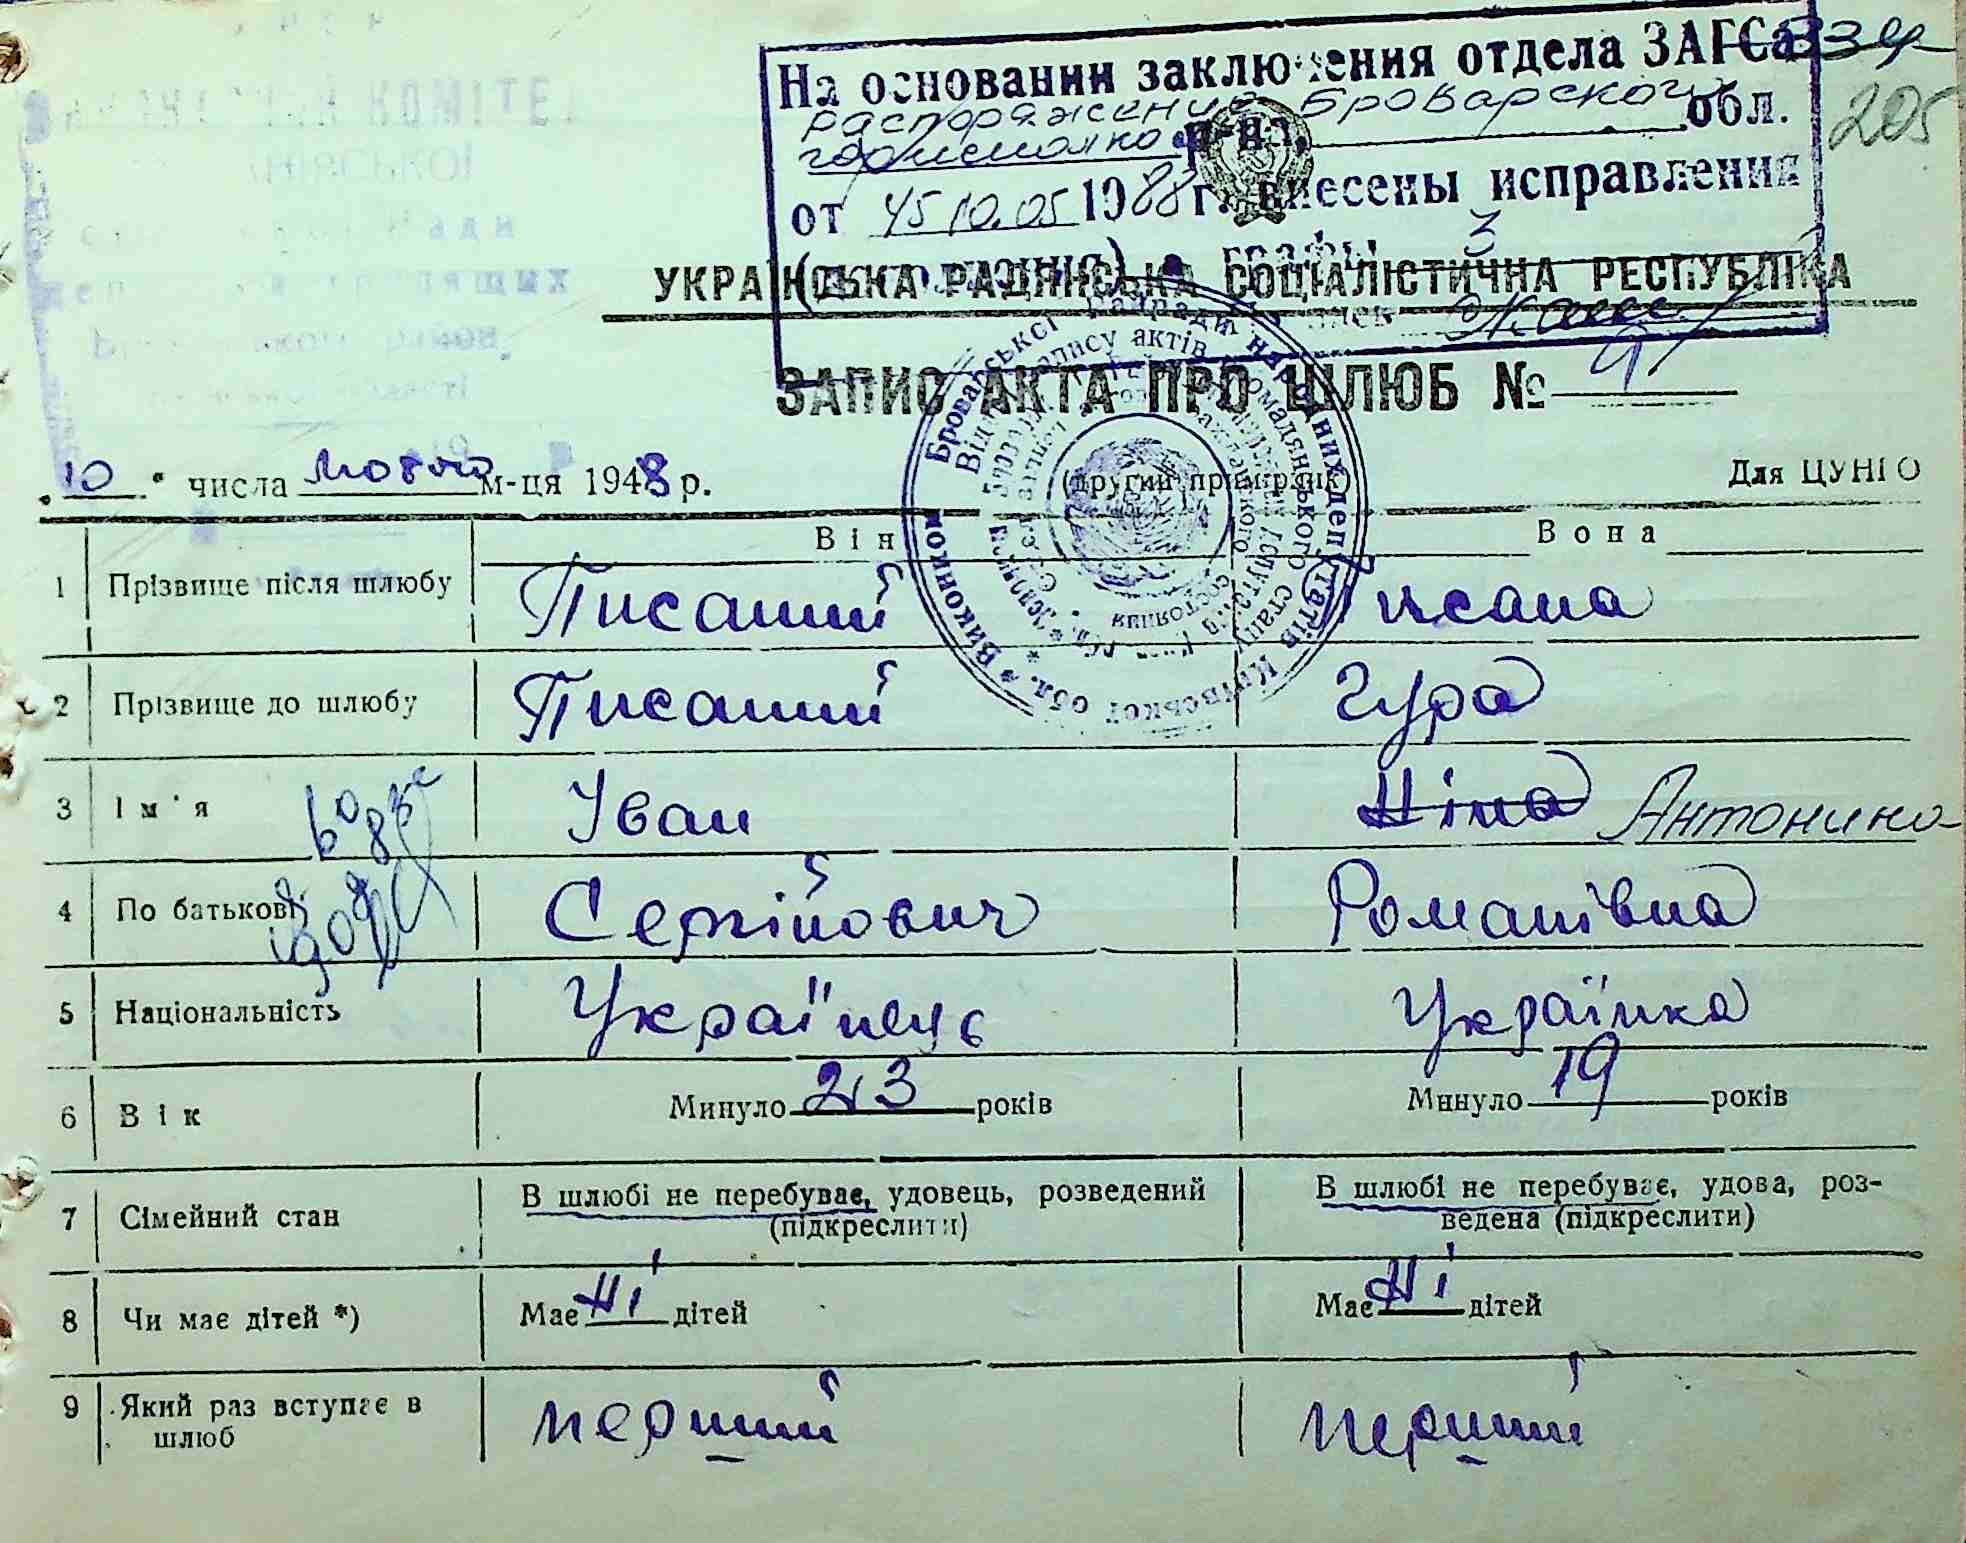 На основании заключения отдела ЗАГСа
распоряжение Броварского
горисполко р-на, обл.
от 45 10.05 1988 г. внесены исправления
графы 3
УКРАЇНСЬКА РАДЯНСЬКА СОЦІАЛІСТИЧНА РЕСПУБЛІКА
205
ЗАПИС АКТА ПРО ШЛЮБ №
„10" числа лютого м-ця 1948 р.
(другий примірник)
Для ЦУНГО
Він Вона
1 Прізвище після шлюбу Писаний Писана
2 Прізвище до шлюбу Писаний Гура
3 Ім'я Іван Ніна Антонина
4 По батькові Сергійович Романівна
5 Національність Українець Українка
6 Вік Минуло 23 років Минуло 19 років
7 Сімейний стан В шлюбі не перебуває, удовець, розведений (підкреслити) В шлюбі не перебуває, удова, роз-
ведена (підкреслити)
8 Чи має дітей *) Має Ні дітей Має Ні дітей
9 Який раз вступає в шлюб перший перший
Броварської райради народних депутатів Київської обл. * Виконком
Відділ запису актів громадянського стану